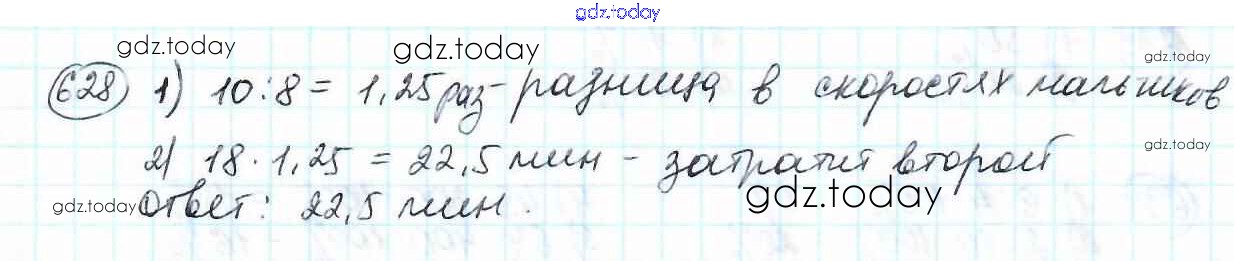 gdz.today
gdz.today gdz.today gdz.today
628 1) 10:8 = 1,25 раз - разница в скоростях мальчиков
2) 18 · 1,25 = 22,5 мин - затратит второй
gdz.today
gdz.today Ответ: 22,5 мин. gdz.today